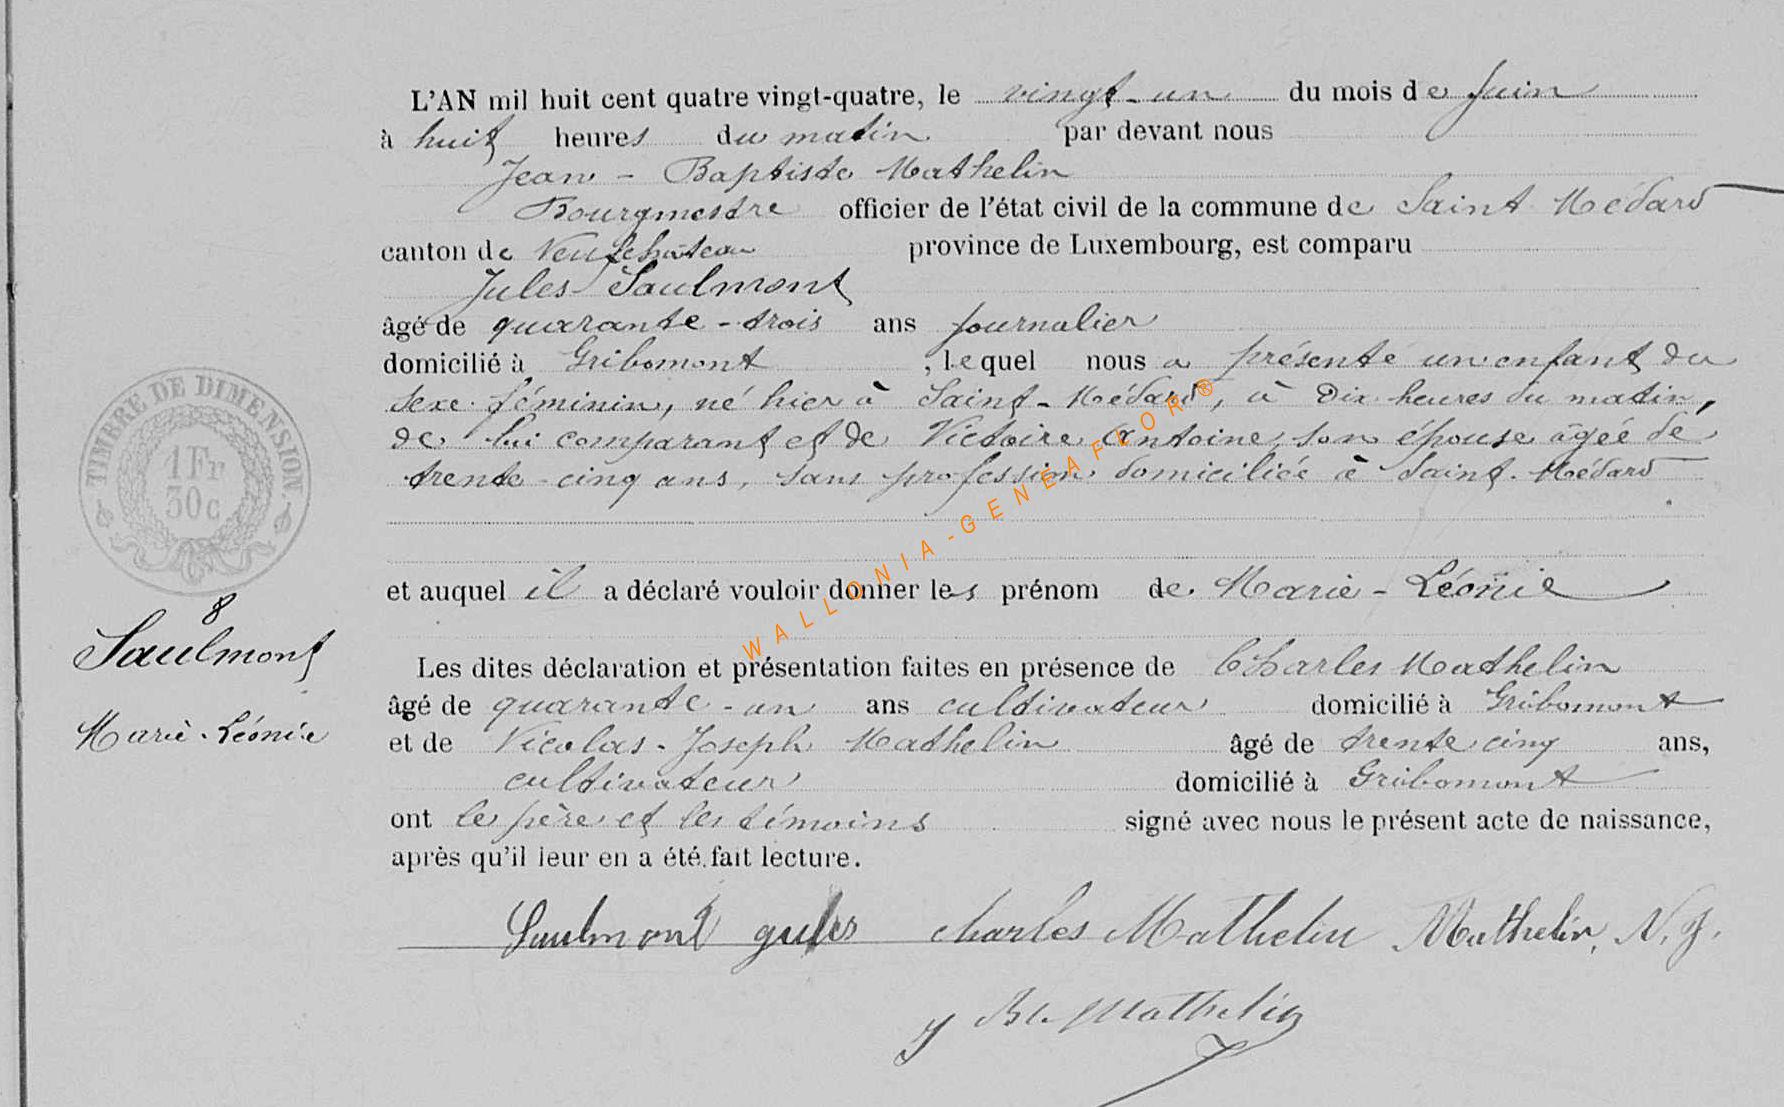 L'AN mil huit cent quatre vingt-quatre, le vingt-un du mois de Juin
à huit heures du matin par devant nous
Jean-Baptiste Mathelin
Bourgmestre officier de l'état civil de la commune de Saint Médard
canton de Neufchâteau province de Luxembourg, est comparu
Jules Saulmont
âgé de quarante-trois ans journalier
domicilié à Gribomont, lequel nous a présenté un enfant du
sexe féminin, né hier à Saint-Médard, à dix heures du matin,
de lui comparant et de Victoire Antoine, son épouse âgée de
trente-cinq ans, sans profession domiciliée à Saint-Médard
et auquel il a déclaré vouloir donner les prénom de Marie-Léonie
Les dites déclaration et présentation faites en présence de Charles Mathelin
âgé de quarante-un ans cultivateur domicilié à Gribomont
et de Nicolas-Joseph Mathelin âgé de trente cinq ans,
cultivateur domicilié à Gribomont
ont le père et les témoins signé avec nous le présent acte de naissance,
après qu'il leur en a été fait lecture.
Saulmont jules charles Mathelin Mathelin, N. J.
J Bte Mathelin
TIMBRE DE DIMENSION
1 Fr
30 c
8
Saulmont
Marie-Léonie
WALLONIA-GENÉAFLOR®